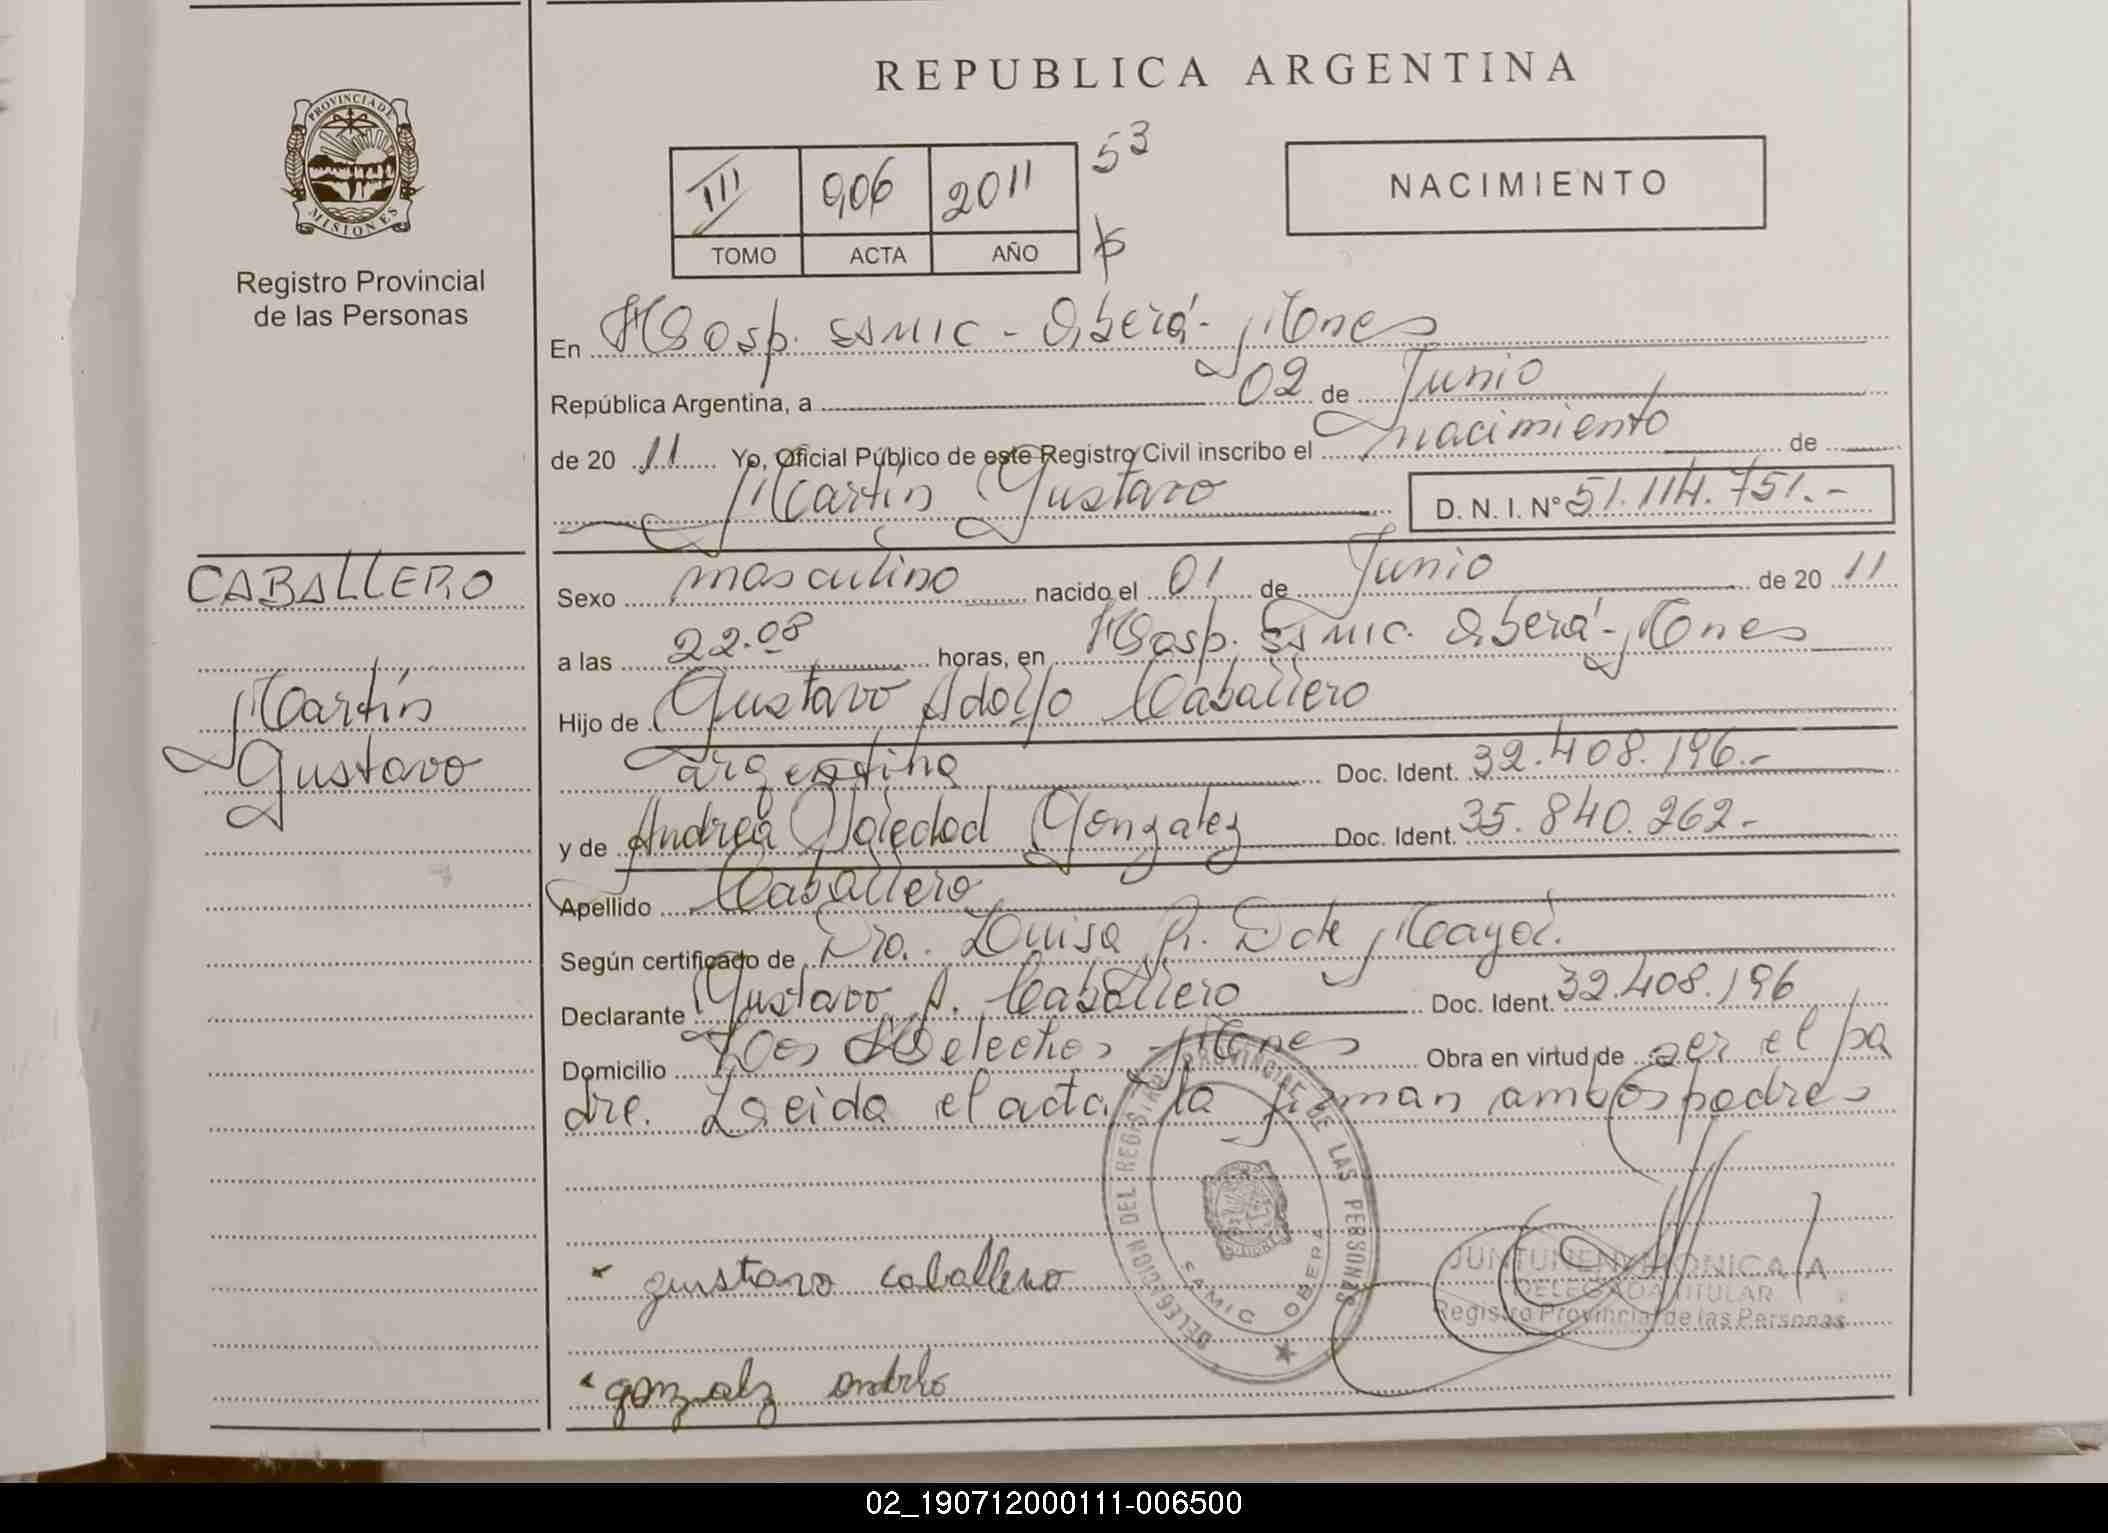 REPUBLICA ARGENTINA
PROVINCIA DE
MISIONES
Registro Provincial
de las Personas
III 906 2011 53
TOMO ACTA AÑO
NACIMIENTO
En Hosp. SAMIC - Oberá - Mnes
República Argentina, a 02 de Junio
de 20 11 Yo, Oficial Público de este Registro Civil inscribo el nacimiento de
Martín Gustavo D. N. I. Nº 51.114.751.-
CABALLERO
Martín
Gustavo
Sexo masculino nacido el 01 de Junio de 20 11
a las 22.08 horas, en Hosp. SAMIC. Oberá - Mnes
Hijo de Gustavo Adolfo Caballero
argentina Doc. Ident. 32.408.196.-
y de Andrea Soledad Gonzalez Doc. Ident. 35.840.262.-
Apellido Caballero
Según certificado de Dra. Luisa R. D de
Declarante Gustavo A. Caballero Doc. Ident. 32.408.196
Domicilio Los Helechos - Mnes Obra en virtud de ser el pa
dre. Leida el acta la firman ambos padres
DELEGACION DEL REGISTRO PROVINCIAL DE LAS PERSONAS
SAMIC OBERA
gustavo caballero
JUNTUNEN MONICA A
DELEGADA TITULAR
Registro Provincial de las Personas
gonzalz
02_190712000111-006500